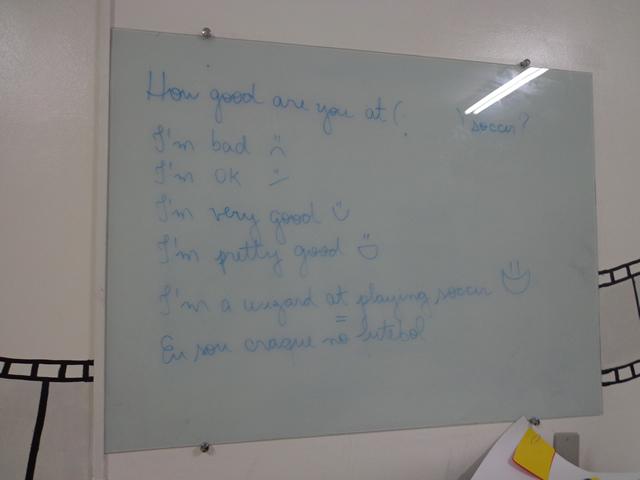 How good are you at (        ) soccer?
I'm bad
I'm ok
I'm very good
I'm pretty good
I'm a wizard at playing soccer
=
Eu sou craque no futebol